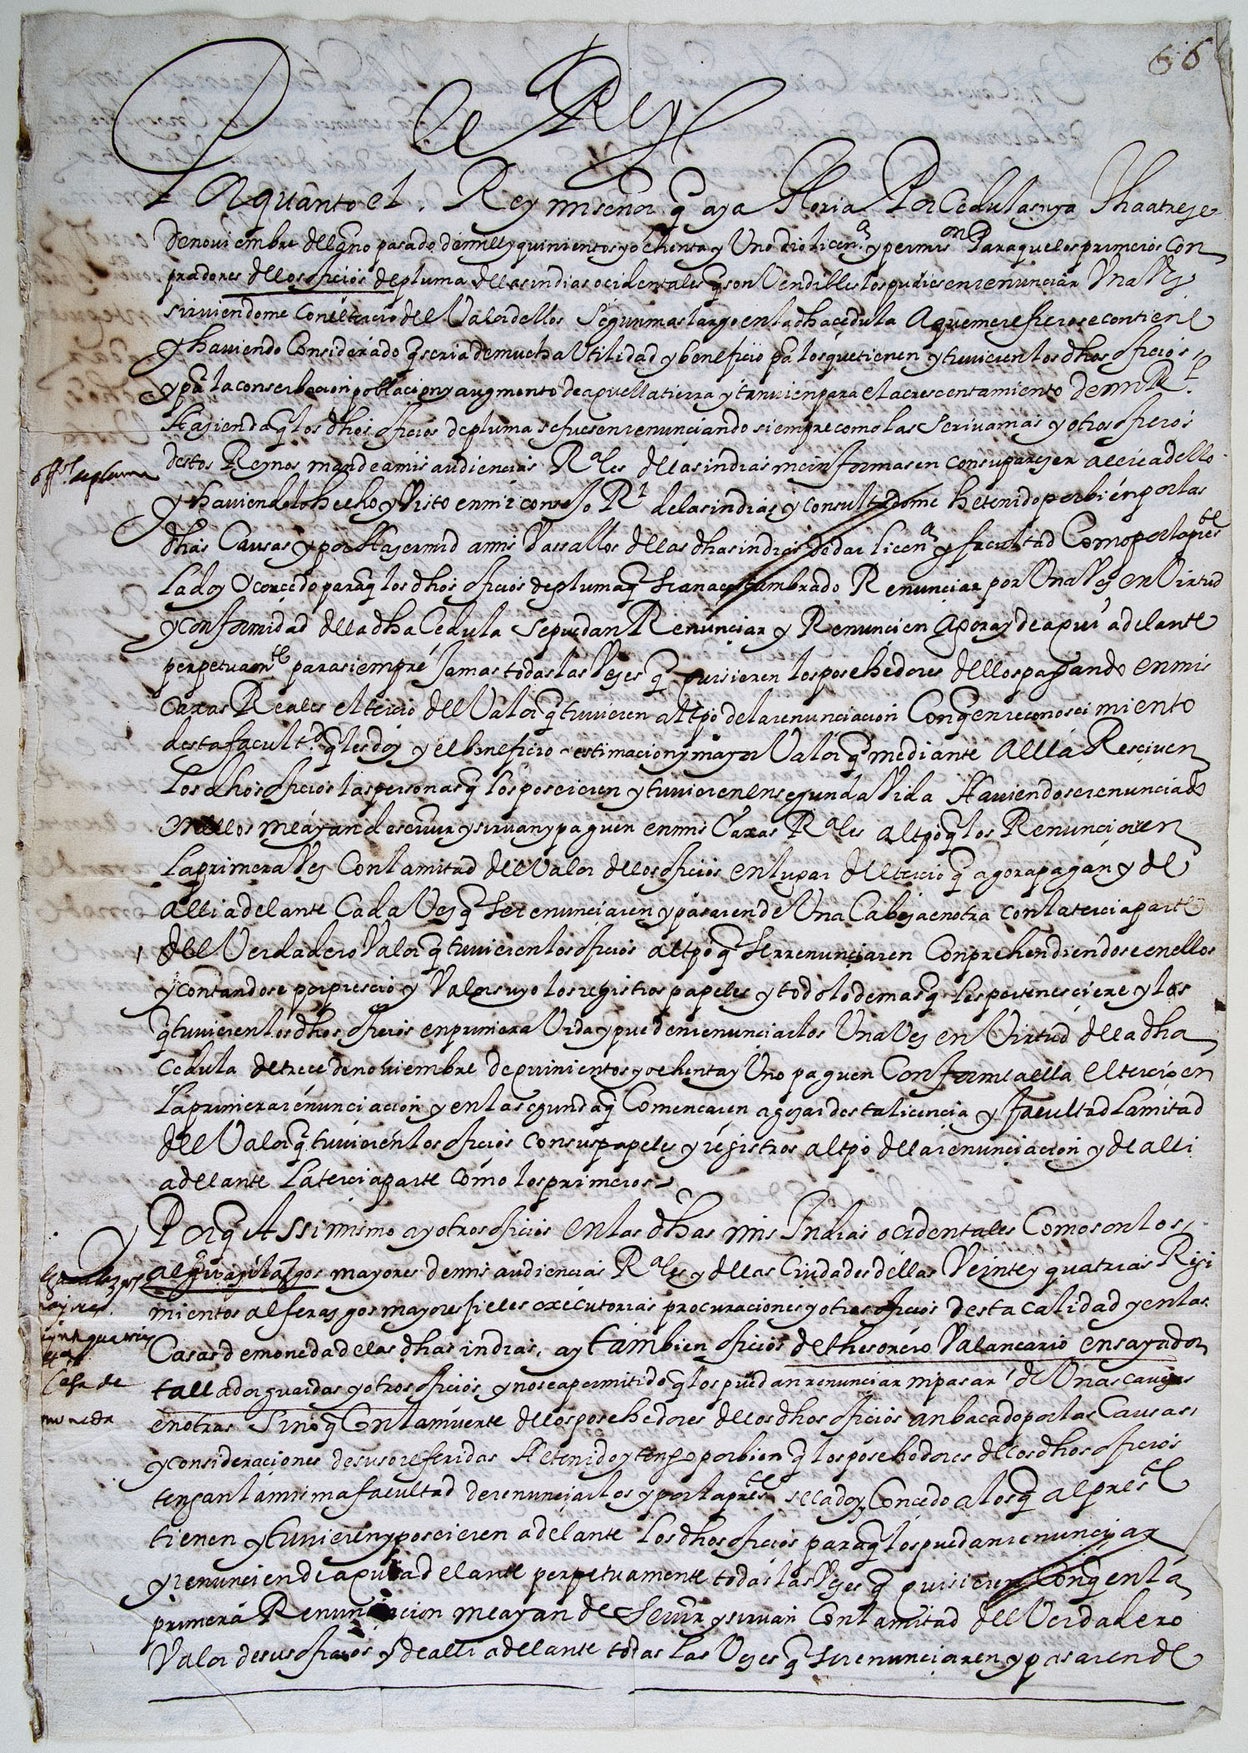 66
El Rey
Por quanto el Rey mi señor q aya gloria Por Cedula suya fha a treze
de noviembre del año pasado de mill y quinientos y ochenta y Uno dio licen.a y permis.on Para que los primeros con
pradores de los oficios de pluma de las indias ocidentales q son Vendibles los pudiesen renunciar Una Vez
sirviendome Con el tercio del Valor dellos Segun mas largo en la dha cedula A que me refiero se contiene
y haviendo Considerado q seria de mucha Utilidad y beneficio pa los que tienen y tuvieren los dhos oficios
y pa la conserbacion poblacion y augmento de aquella tierra y tanvien para el acrecentamiento de mi Rl
Hazienda q los dhos oficios de pluma se fuesen renunciando siempre como las Scrivanias y otros oficios
destos Reynos mande a mis audiencias Rales de las indias me informasen con su parezer acerca dello
offos de pluma
y haviendolo hecho y Visto en mi consejo Rl de las indias y consultadome he tenido por bien por las
dhas Causas y por Hazer md a mis Vassallos de las dhas indias de dar licen.a y facultad Como por la preste
La doy y concedo para q los dhos oficios de pluma q se an acostumbrado Renunciar por Una Vez en Virtud
y conformidad de la dha Cedula se puedan Renunciar y Renuncien agora y de aqui adelante
perpetuamte para siempre Jamas todas las Vezes q quisieren los posehedores dellos pagando en mis
Caxas Reales el tercio del Valor q tuvieren al tpo de la renunciacion Con q en reconoscimiento
desta facult.d q les doy y el beneficio estimacion y mayor Valor q mediante a ella Resciven
Los dhos oficios las personas q los poseieren y tuvieren en segunda Vida Haviendose renunciado
en ellos me ayan de servir y sirvan y paguen en mis Caxas Rales al tpo q los Renunciaren
la primera Vez Con la mitad del Valor de los oficios en lugar del tercio q agora pagan y de
alli adelante Cada Vez q se renunciaren y pasaren de Una Cabeza en otra con la tercia parte
del Verdadero Valor q tuvieren los oficios al tpo q se renunciaren Conprehendiendose en ellos
y contandose por precio y Valor suyo los registros papeles y todo lo demas q les pertenesciere y los
q tuvieren los dhos oficios en primera Vida y pueden renunciarlos Una Vez en Virtud de la dha
Cedula de trece de noviembre de quinientos y ochenta y Uno paguen Conforme a ella el tercio en
la primera renunciacion y en la segunda q Comencaren a gozar desta licencia y facultad la mitad
del Valor q tuvieren los oficios con sus papeles y registros al tpo de la renunciacion y de alli
adelante La tercia parte como los primeros
Y Por q Assimismo ay otros oficios en las dhas mis Indias ocidentales Como son los
alguazilazgos mayores de mis audiencias Rales y de las Ciudades dellas Veinte y quatrias Regi
mientos alferazgos mayores fieles executorias procuraciones y otros oficios desta calidad y en las
Casas de moneda de las dhas indias, ay tambien oficios de thesorero Valancario ensayador
Casa de
moneda
tallador guardas y otros oficios y no se a permitido q los puedan renunciar ni pasar de Unas caveças
en otras Sino q Con la muerte de los posehedores de los dhos oficios an bacado por las Causas
y consideraciones de suso referidas He tenido y tengo por bien q los posehedores de los dhos oficios
tengan la misma facultad de renunciarlos y por la preste se la doy y Concedo a los q al preste
tienen y tuvieren y poseieren adelante los dhos oficios para q los puedan renunciar
y renuncien de aqui adelante perpetuamente todas las Vezes q quisieren Con q en la
primera Renunciacion me ayan de Servir y sirvan Con la mitad del Verdadero
Valor de sus oficios y de alli adelante todas las Vezes q se renunciaren y pasaren de